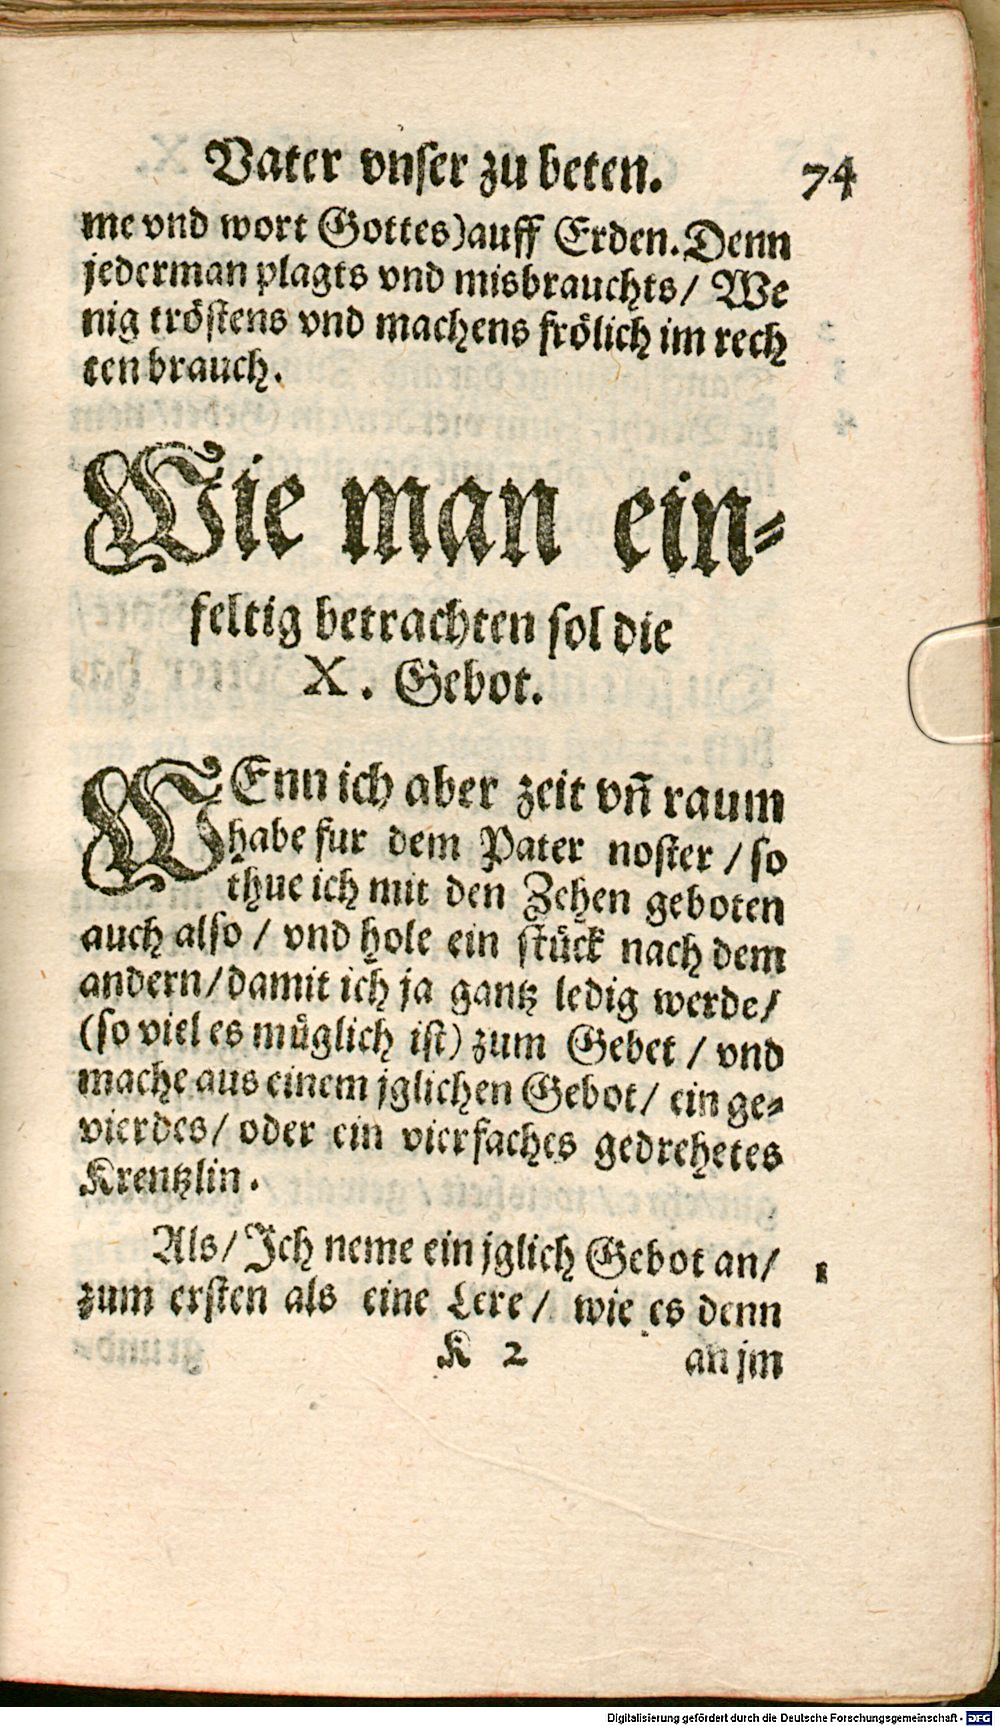 Vater vnser zu beten. 74
me vnd wort Gottes)auff Erden. Denn
jederman plagts vnd misbrauchts/ We
nig tröstens vnd machens frölich im rech
ten brauch.
Wie man ein-
feltig betrachten sol die
X. Gebot.
WEnn ich aber zeit vñ raum
habe fur dem Pater noster / so
thue ich mit den Zehen geboten
auch also / vnd hole ein stück nach dem
andern/damit ich ja gantz ledig werde/
(so viel es müglich ist) zum Gebet / vnd
mache aus einem jglichen Gebot/ ein ge-
vierdes/ oder ein vierfaches gedrehetes
Krentzlin.
Als/ Ich neme ein jglich Gebot an/ 1
zum ersten als eine Lere/ wie es denn
K 2 an jm
Digitalisierung gefördert durch die Deutsche Forschungsgemeinschaft - DFG